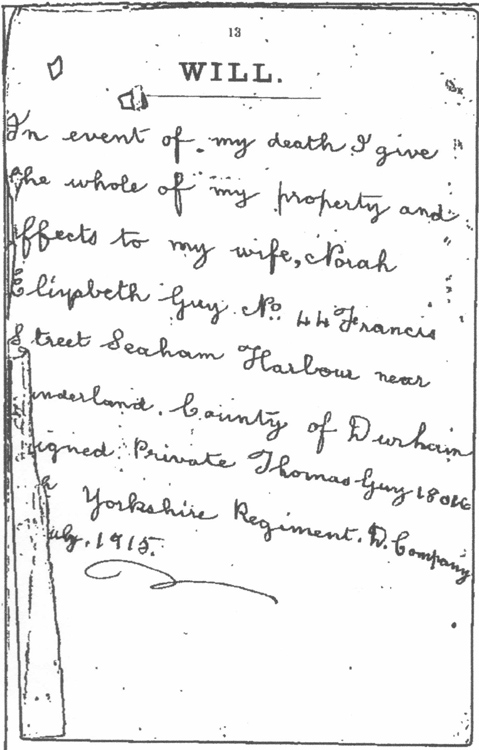 13
WILL.
In event of my death I give
the whole of my property and
effects to my wife, Norah
Elizabeth Guy No. 44 Francis
Street Seaham Harbour near
underland. County of Durham
igned Private Thomas Guy
Yorkshire Regiment. D. Company
uly. 1915.